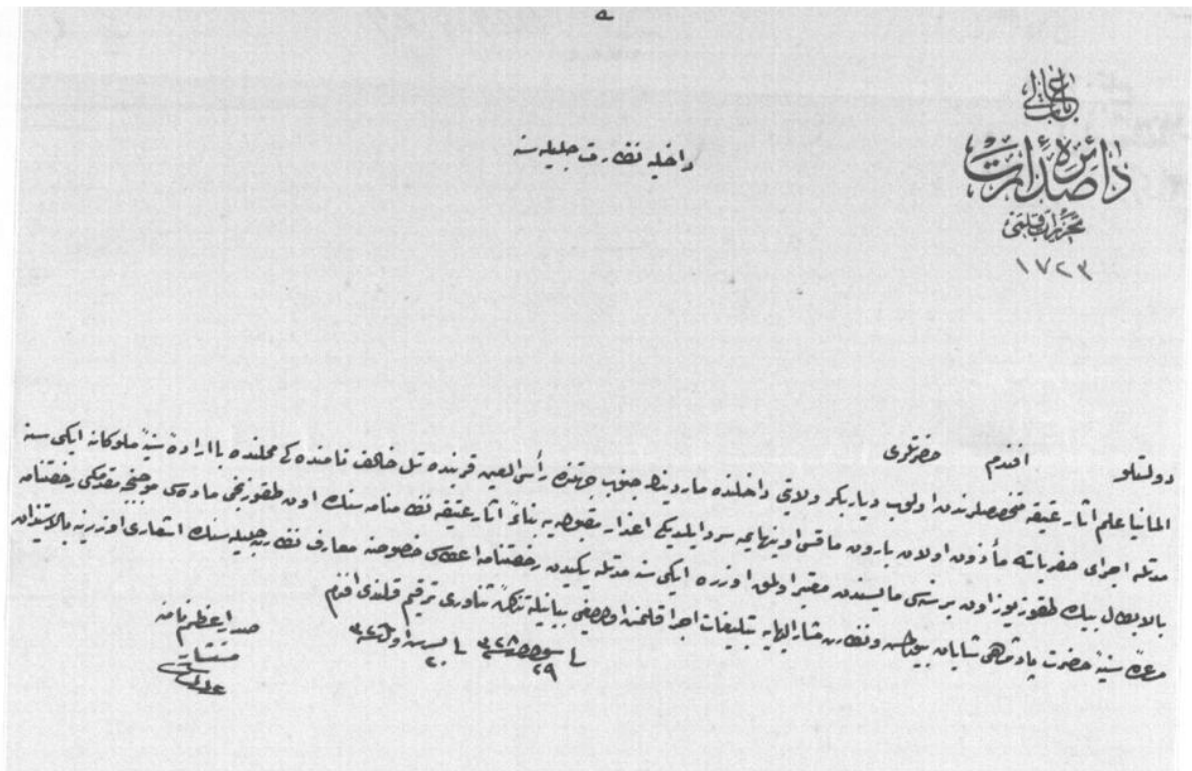 باب عالی
دائرهٔ صدارت
تحریرات قلمی
١٧٢٣
داخلیه نظارت جلیله سنه
دولتلو افندم حضرتلری
المانیا علم اثار عتیقه متخصصلرندن اولوب دیاربکر ولایتی داخلنده ماردینك جنوب جهتنده رأس العین قربنده تل خالف نامنده کی محلنده باارادهٔ سنیهٔ ملوکانه ایکی سنه
مدتله اجرای حفریاته مأذون اولان بارون ماقس اوپنهایمه سرد ایلدیکی اعذار مقبوله یه بناءً اثار عتیقه نظامنامه سنك اون طقوزنجی ماده سی موجبنجه رخصتنامه
بالابطال بیك طقوز یوز اون بر سنه سی مایسندن معتبر اولمق اوزره ایکی سنه مدتله یکیدن رخصتنامه اعطاسی خصوصنه معارف نظارت جلیله سنك اشعاری اوزرینه بالاستیذان
ارادهٔ سنیهٔ حضرت پادشاهی شایان بیورلمش ونظارت مشار الیهایه تبلیغات اجرا قلنمش اولدیغی بیانیله تذکرهٔ ثناوری ترقیم قلندی افندم
٣٢٨ ٢٩
٣٢٦ ٢٠
صدر اعظم نامنه
مستشار